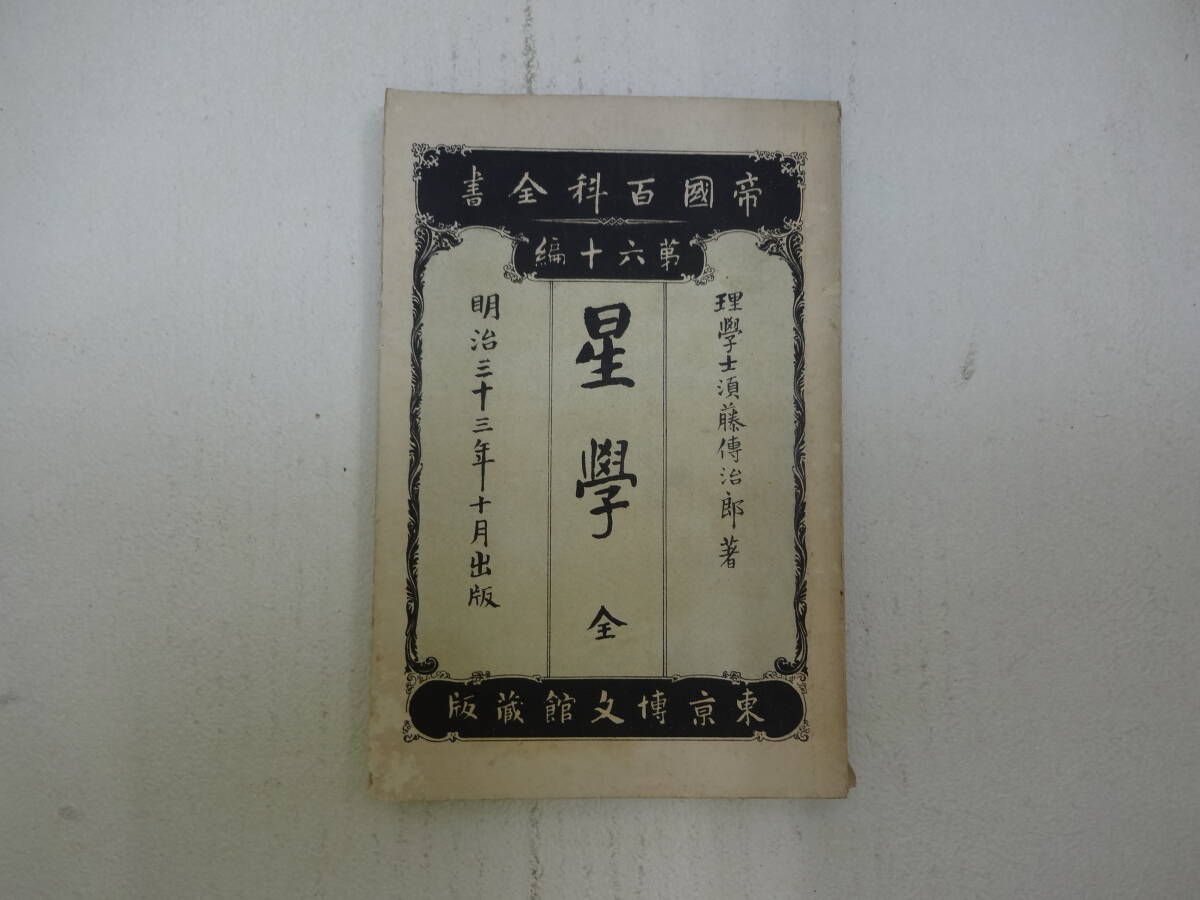 帝國百科全書
第六十編
理學士須藤傳治郎著
星學 全
明治三十三年十月出版
東京博文館蔵版